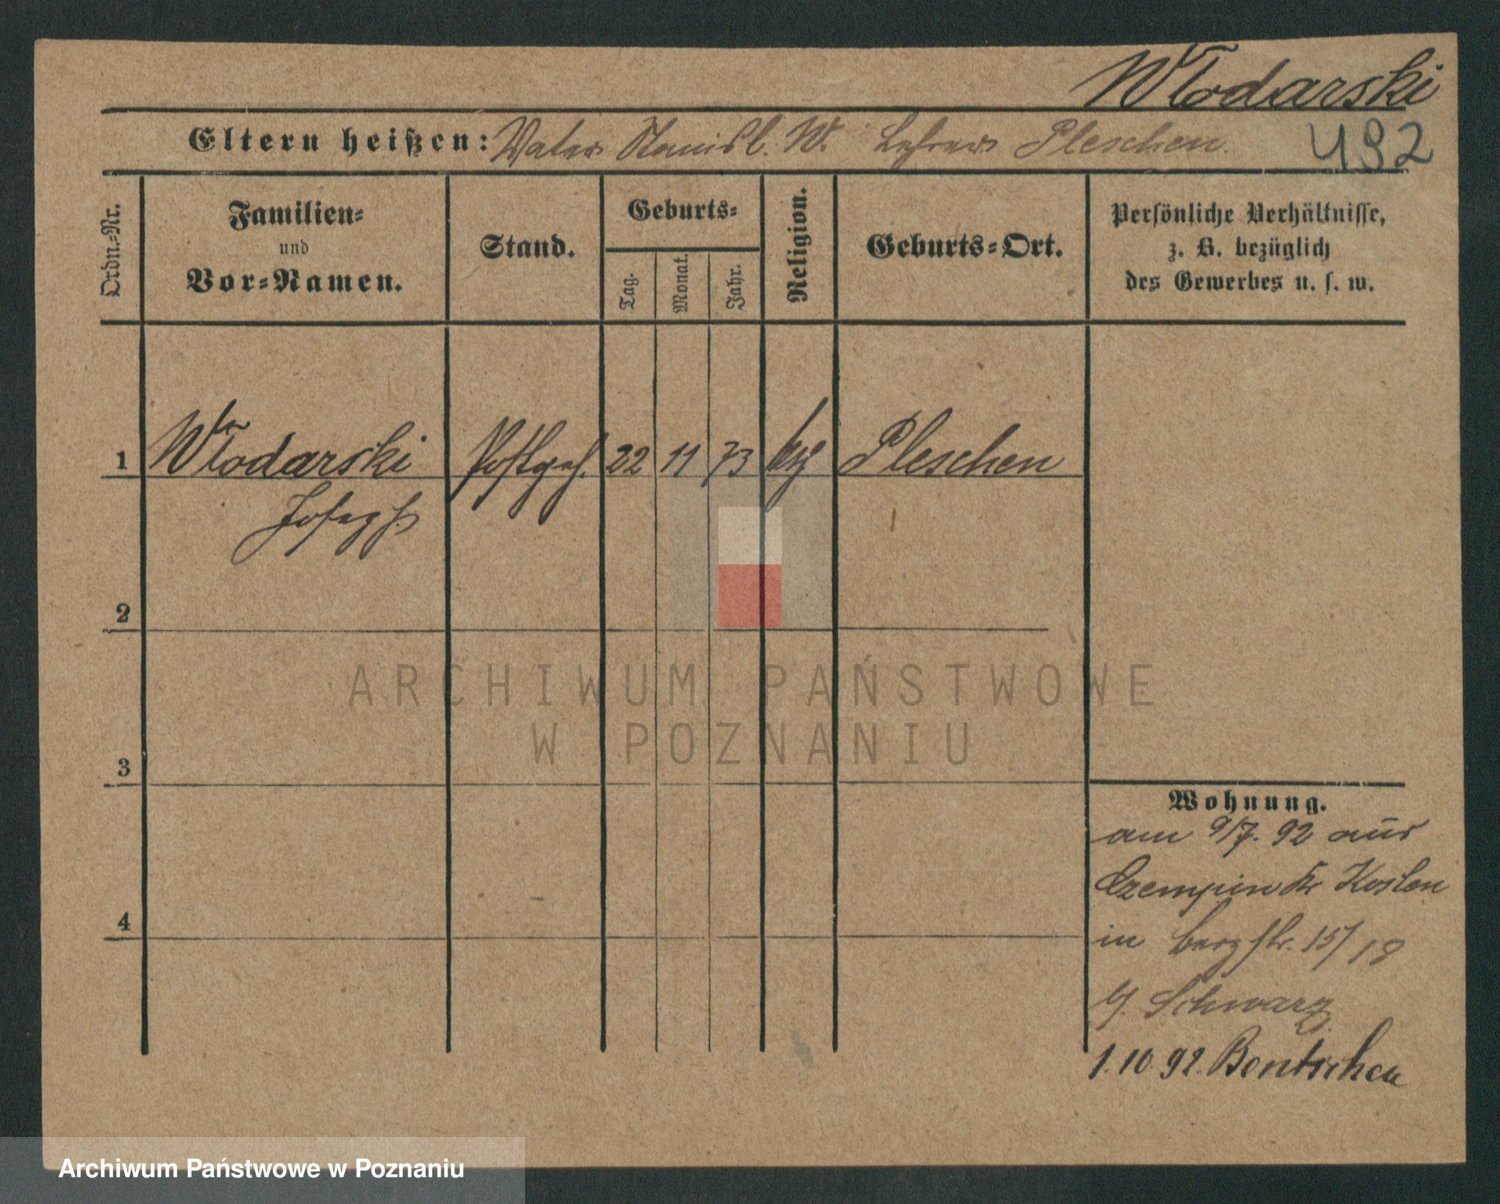 Włodarski
Eltern heißen: Vater Stanisl. W. Lehrer Pleschen.
492
Ordn.-Nr.
Familien-
und
Vor-Namen.
Stand.
Geburts-
Tag.
Monat.
Jahr.
Religion.
Geburts-Ort.
Persönliche Verhältnisse,
z. B. bezüglich
des Gewerbes u. s. w.
1 Włodarski Postgeh. 22 11 73 Pleschen
Joseph
2
3
4
ARCHIWUM PAŃSTWOWE
W POZNANIU
Wohnung.
am 9/7. 92 aus
Czempin Kr Kosten
in Bergstr. 15/18
b/. Schwarz.
1.10.92. Bentschen
Archiwum Państwowe w Poznaniu